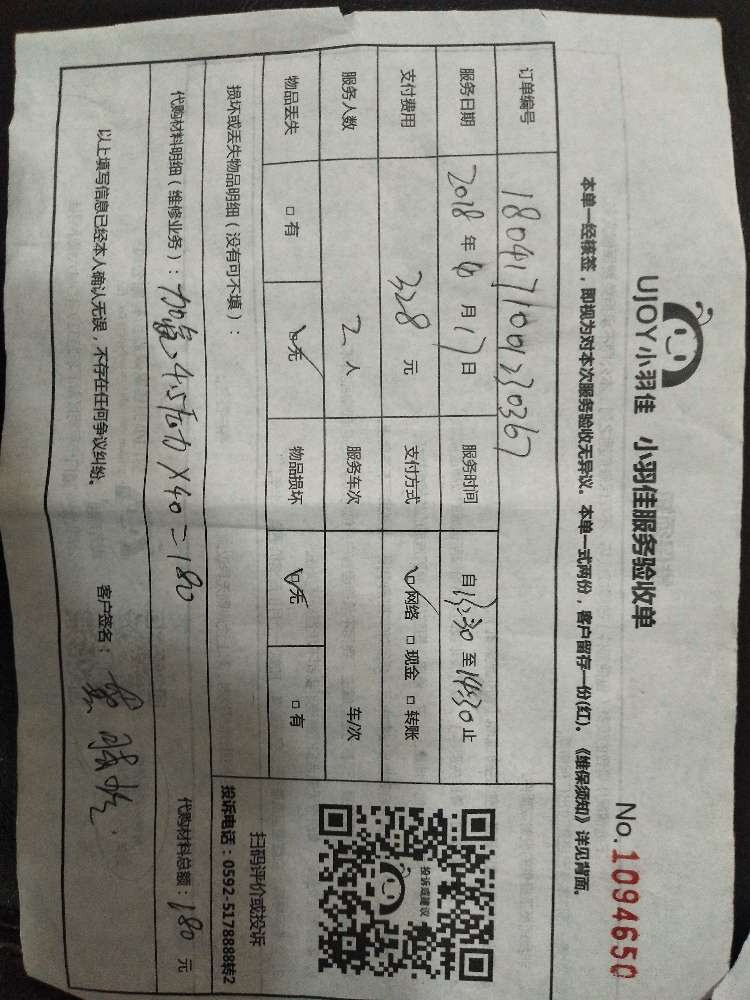 UJOY小羽佳 小羽佳服务验收单
No.1094650
本单一经核签，即视为对本次服务验收无异议。本单一式两份，客户留存一份(红)。《维保须知》详见背面。
订单编号
服务日期 2018年 月17日 服务时间 自13:30至14:30止
支付费用 328元 支付方式 ☑网络 □现金 □转账
服务人数 2人 服务车次 车/次
物品丢失 □有 ☑无 物品损坏 ☑无 □有
投诉或建议
扫码评价或投诉
投诉电话：0592-5178888转2
损坏或丢失物品明细（没有可不填）：
代购材料明细（维修业务）：加氟、4.5 ×40=180 代购材料总额：180元
以上填写信息已经本人确认无误，不存在任何争议纠纷。 客户签名：